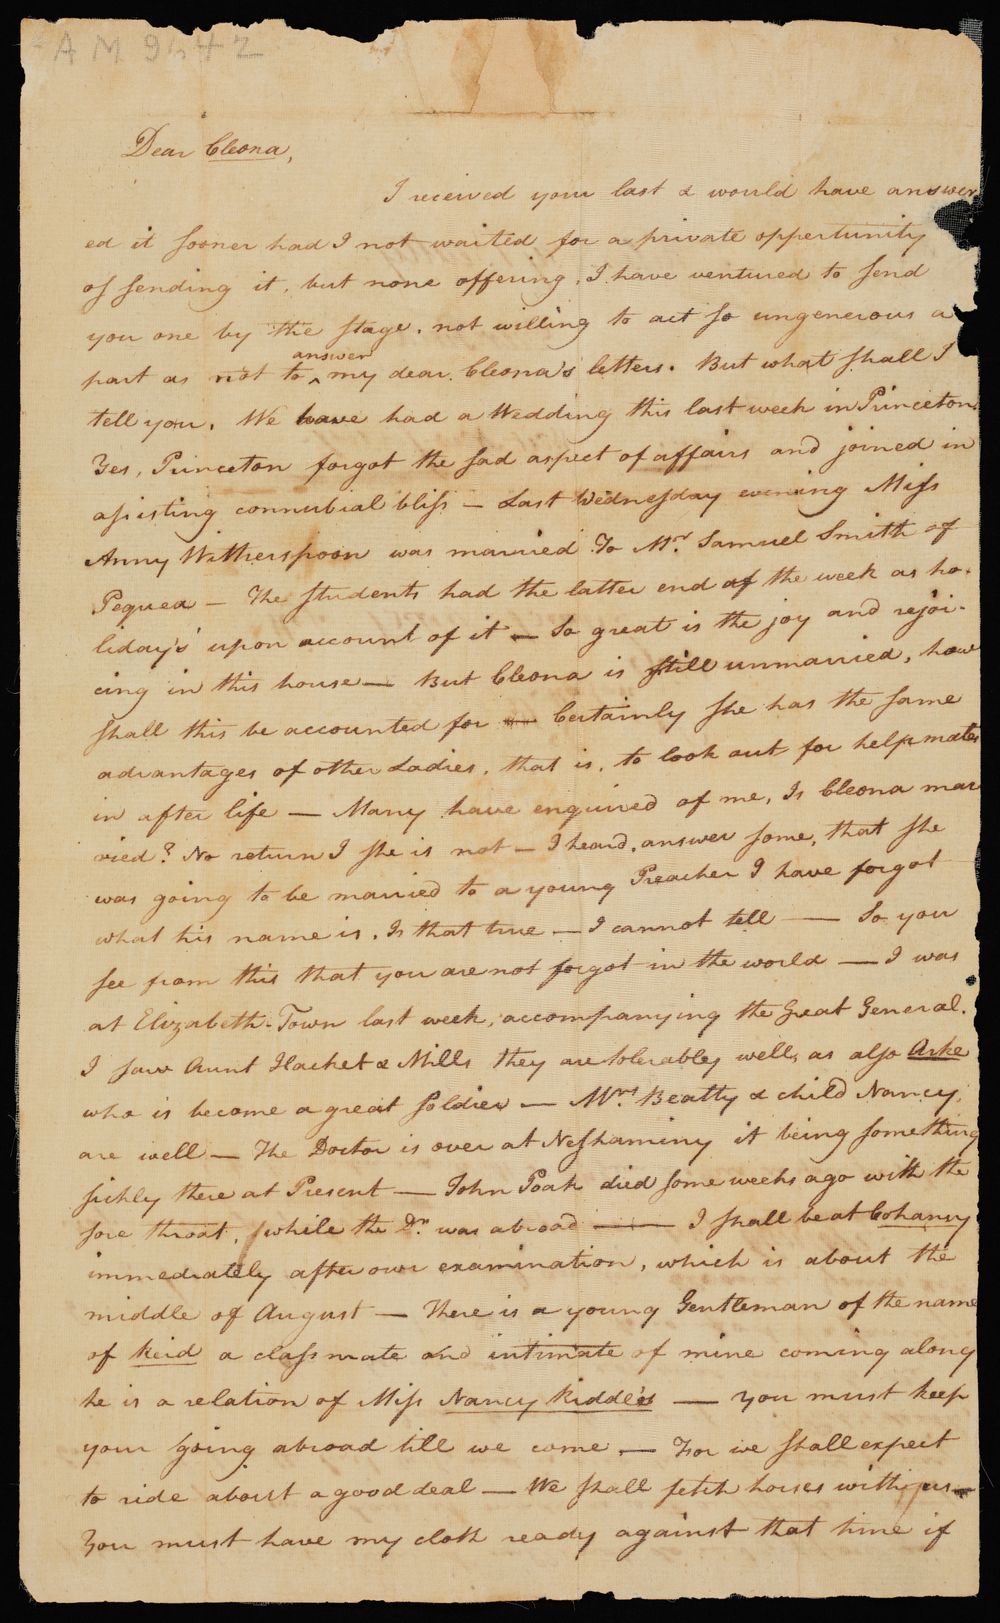 AM 9542
Dear Cleona,
I received your last & would have answer
ed it sooner had I not waited for a private oppertunity
of sending it, but none offering, I have ventured to send
you one by the stage, not willing to act so ungenerous a
answer
part as not to ^ my dear Cleona's letters. But what shall I
tell you. We have had a Wedding this last week in Princeton
Yes, Princeton forgot the sad aspect of affairs and joined in
assisting connubial bliss — Last Wednesday evening Miss
Anny Witherspoon was married To Mr. Samuel Smith of
Pequea — The students had the latter end of the week as ho-
liday's upon account of it — So great is the joy and rejoi-
cing in this house — But Cleona is still unmarried, how
shall this be accounted for — Certainly she has the same
advantages of other Ladies, that is, to look out for helpmates
in after life — Many have enquired of me, Is Cleona mar
ried? No return I she is not — I heard, answer some, that she
was going to be married to a young Preacher I have forgot
what his name is. Is that true — I cannot tell — So you
see from this that you are not forgot in the world — I was
at Elizabeth-Town last week, accompanying the Great General.
I saw Aunt Hacket & Mills they are tolerabley well, as also Arke
who is become a great soldier — Mrs. Beatty & child Nancy,
are well — The Doctor is over at Neshaminy it being something
sickly there at Present — John Poak died some weeks ago with the
sore throat, while the Dr. was abroad — I shall be at Cohansy
immediately after our examination, which is about the
middle of August — There is a young Gentleman of the name
of Keid a classmate and intimate of mine coming along
he is a relation of Miss Nancy Riddle's — You must keep
your going abroad till we come — For we shall expect
to ride about a good deal — We shall fetch horses with us —
You must have my cloth ready against that time if